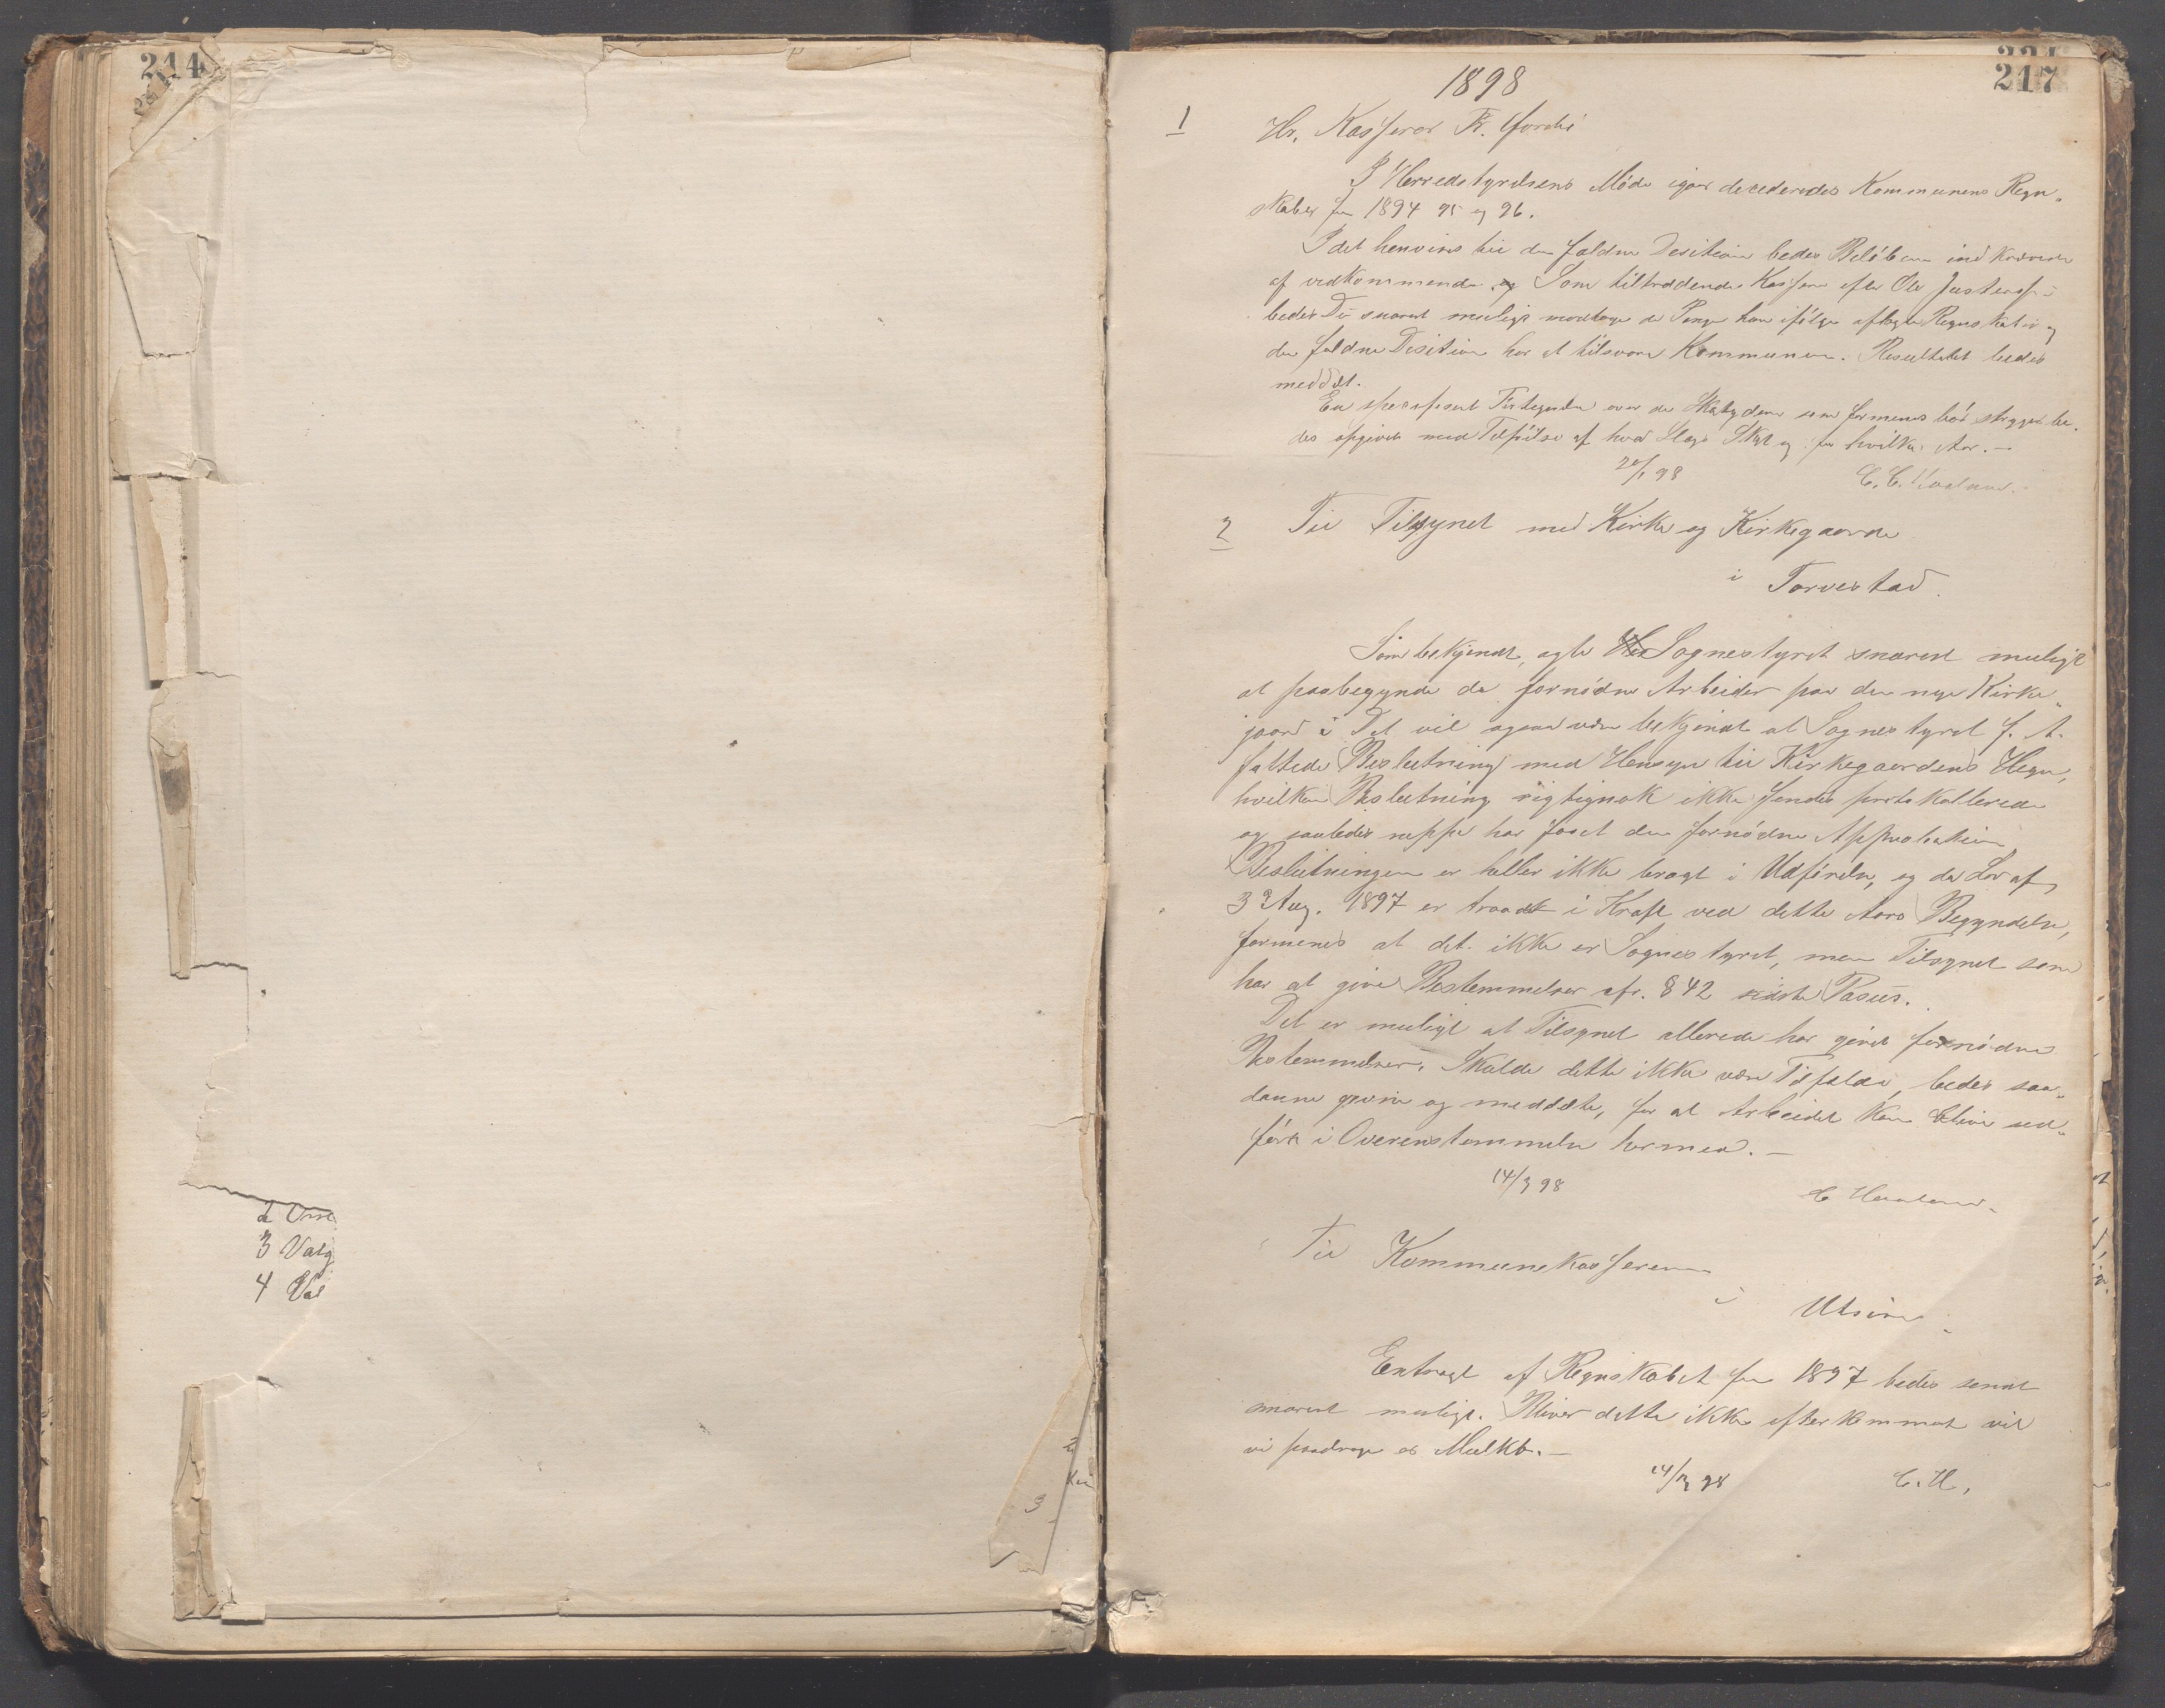 214
de
3 Valg
4 Val
3
217
1898
1 Hr. Kasserer Fr.
I Herredstyrelsens Møde igaar decideredes Kommunens Regn-
skaber for 1894 95 og 96.
Idet henvises til den faldne Desition bedes Beløbene
af vedkommende. Som tiltrædende Kasserer efter Ole
bedes De snarest muligt modtage de Penge han ifølge aflagte Regnskaber og
den faldne Desition har at tilsvare Kommunen. Resultatet bedes
meddelt.
En specificeret Fortegnelse over de Skatydere som formenes bør stryges be-
des opgivet med Tilføielse af hvad Slags Skat og for hvilke Aar.-
98 C. C.
2 Til Tilsynet med Kirke og Kirkegaarde
i Torvestad.
Som bekjendt, agter Sognestyret snarest muligt
at paabegynde de fornødne Arbeider paa den nye Kirke-
gaard. Det vil ogsaa være bekjendt at Sognestyret f. A.
fattede Beslutning med Hensyn til Kirkegaardens Hegn,
hvilken Beslutning rigtignok ikke findes protokolleret
og saaledes neppe har faaet den fornødne Approbation
Beslutningen er heller ikke bragt i Udførelse, og da Lov af
3 Aug. 1897 er traadt i Kraft ved dette Aars Begyndelse,
formenes at det ikke er Sognestyret, men Tilsynet som
har at give Bestemmelser cfr. § 42 sidste Pasus.
Det er muligt at Tilsynet allerede har givet fornødne
Bestemmelser. Skulde dette ikke være Tilfælde, bedes saa-
danne givne og meddelte, for at Arbeidet kan blive ud-
ført i Overenstemmelse hermed.-
14/3 98
Til Kommunekassereren
i Utsire
Extragt af Regnskabet for 1897 bedes sendt
snarest muligt. Bliver dette ikke efterkommet vil
vi paadrage os Mulkt.-
14/3 98 C. H.